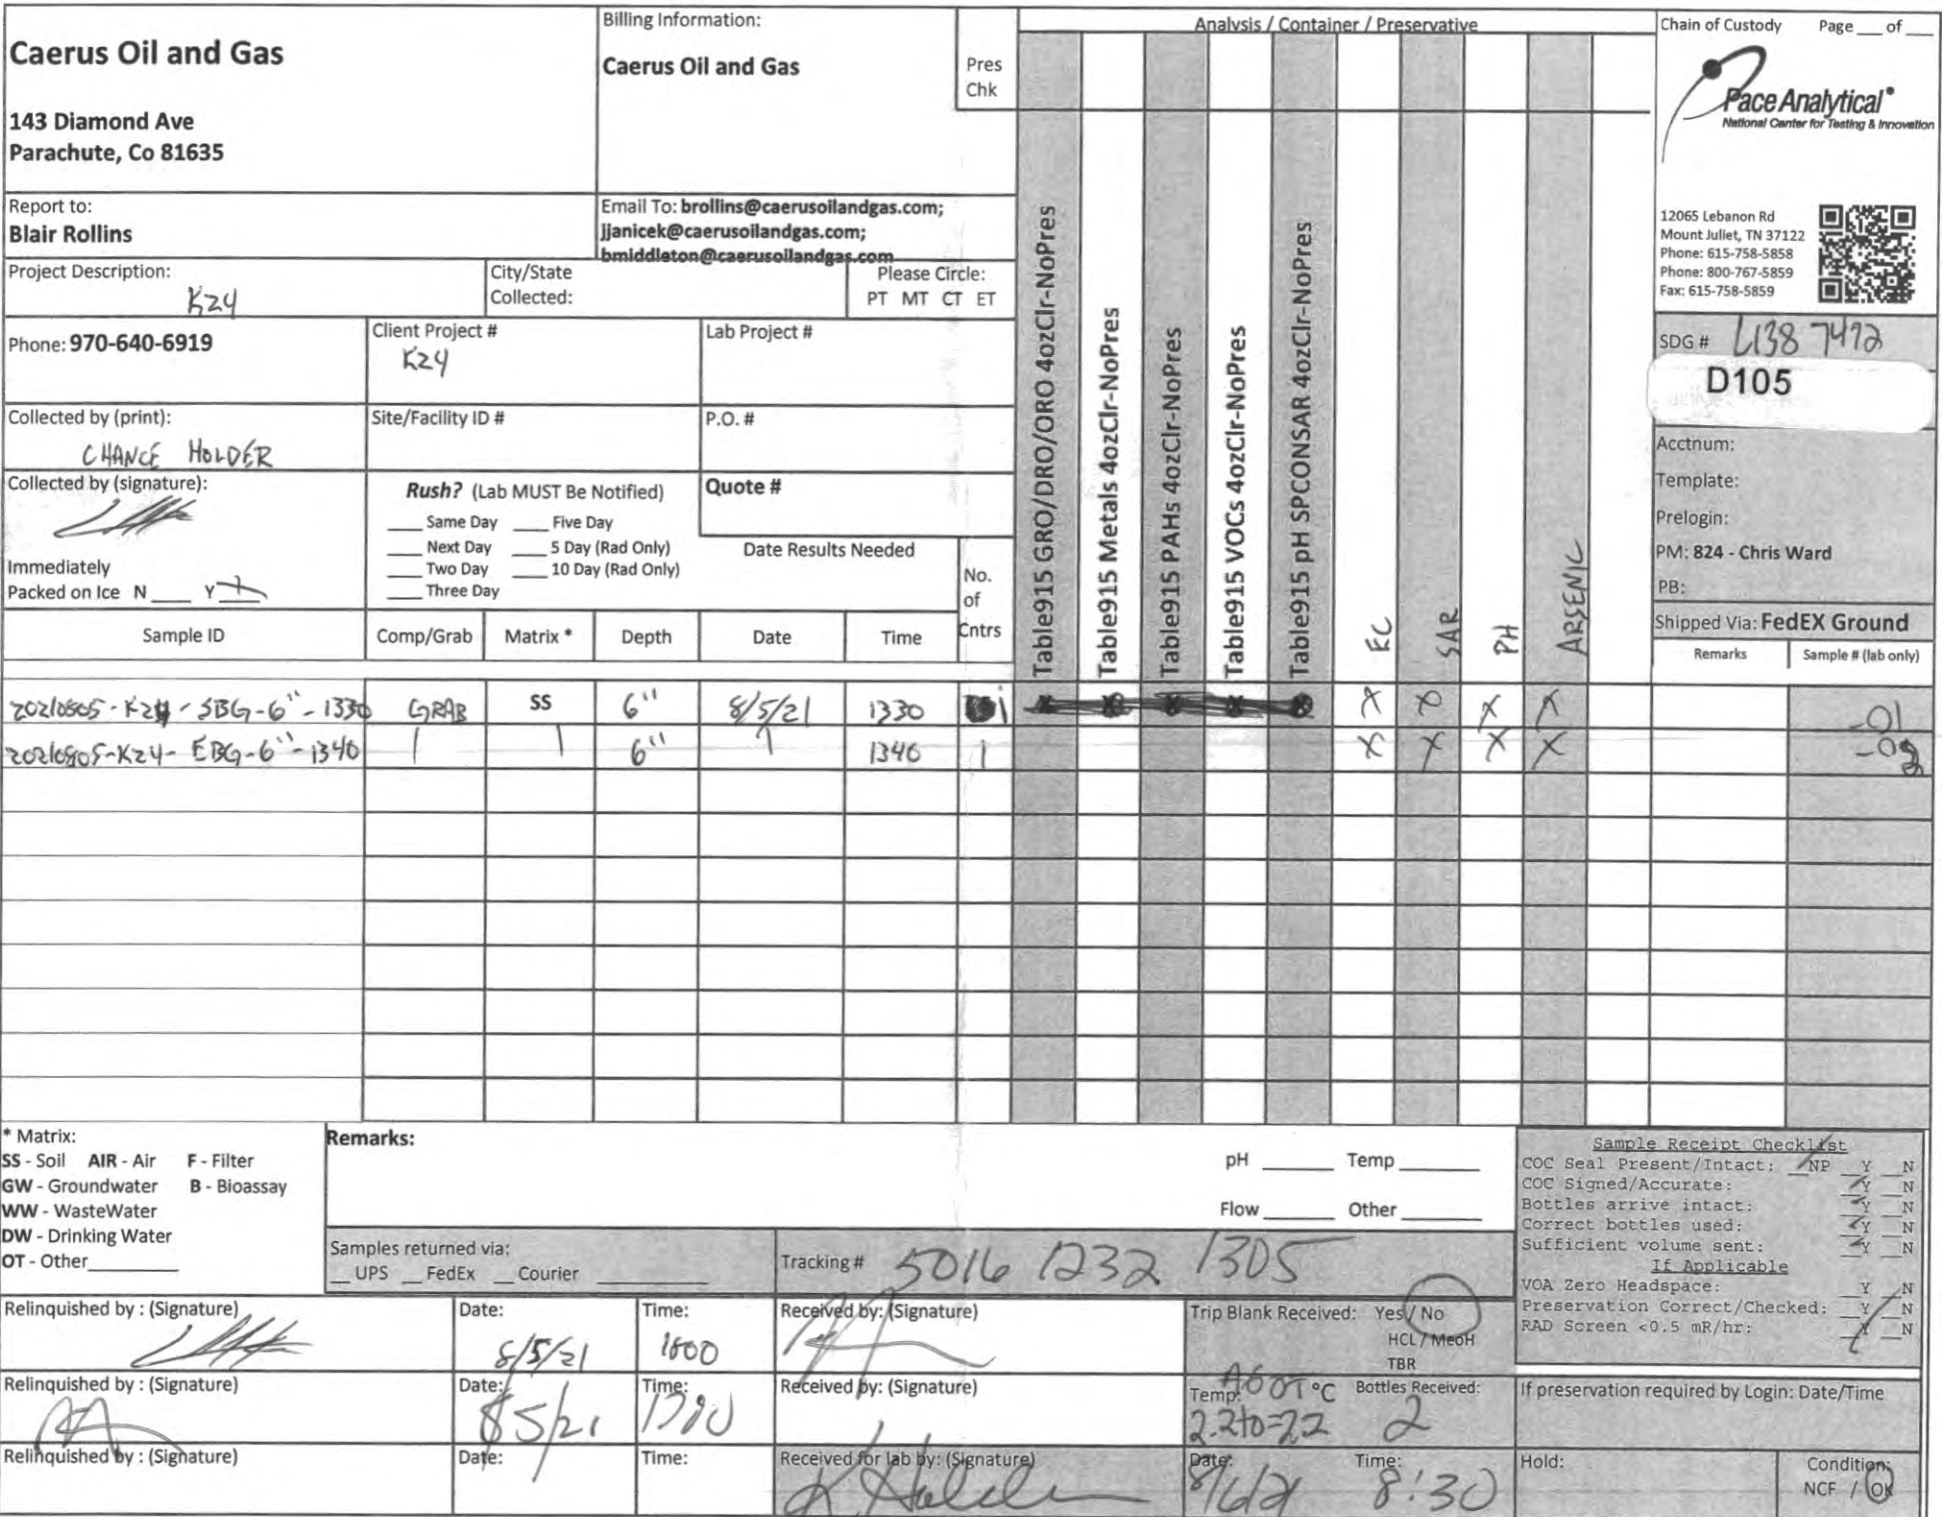 Caerus Oil and Gas
143 Diamond Ave
Parachute, Co 81635
Billing Information:
Caerus Oil and Gas
Pres
Chk
Analysis / Container / Preservative
Chain of Custody Page ___ of ___
Pace Analytical®
National Center for Testing & Innovation
12065 Lebanon Rd
Mount Juliet, TN 37122
Phone: 615-758-5858
Phone: 800-767-5859
Fax: 615-758-5859
Report to:
Blair Rollins
Email To: brollins@caerusoilandgas.com;
jjanicek@caerusoilandgas.com;
bmiddleton@caerusoilandgas.com
Project Description:
K24
City/State
Collected:
Please Circle:
PT MT CT ET
Phone: 970-640-6919
Client Project #
K24
Lab Project #
Collected by (print):
CHANCE HOLDER
Site/Facility ID #
P.O. #
Collected by (signature):
Immediately
Packed on Ice N ___ Y ___
Rush? (Lab MUST Be Notified)
___ Same Day ___ Five Day
___ Next Day ___ 5 Day (Rad Only)
___ Two Day ___ 10 Day (Rad Only)
___ Three Day
Quote #
Date Results Needed
No.
of
Cntrs
Table915 GRO/DRO/ORO 4ozClr-NoPres
Table915 Metals 4ozClr-NoPres
Table915 PAHs 4ozClr-NoPres
Table915 VOCs 4ozClr-NoPres
Table915 pH SPCONSAR 4ozClr-NoPres
EC
SAR
PH
ARSENIC
SDG # L1387472
D105
Acctnum:
Template:
Prelogin:
PM: 824 - Chris Ward
PB:
Shipped Via: FedEX Ground
Sample ID Comp/Grab Matrix * Depth Date Time
Remarks Sample # (lab only)
20210805-K24-SBG-6"-1330 GRAB SS 6" 8/5/21 1330 1 X X X X -01
20210805-K24-EBG-6"-1340 | | 6" | 1340 1 X X X X -02
* Matrix:
SS - Soil AIR - Air F - Filter
GW - Groundwater B - Bioassay
WW - WasteWater
DW - Drinking Water
OT - Other___
Remarks:
pH ___ Temp ___
Flow ___ Other ___
Samples returned via:
__ UPS __ FedEx __ Courier ___
Tracking # 5016 1232 1305
Sample Receipt Checklist
COC Seal Present/Intact: __NP __Y __N
COC Signed/Accurate: __Y __N
Bottles arrive intact: __Y __N
Correct bottles used: __Y __N
Sufficient volume sent: __Y __N
If Applicable
VOA Zero Headspace: __Y __N
Preservation Correct/Checked: __Y __N
RAD Screen <0.5 mR/hr: __Y __N
Relinquished by : (Signature)
Date:
8/5/21
Time:
1800
Received by: (Signature)
Trip Blank Received: Yes / No
HCL / MeoH
TBR
Relinquished by : (Signature)
Date:
8/5/21
Time:
Received by: (Signature)
Temp: °C
2.2+0=2.2
Bottles Received:
2
If preservation required by Login: Date/Time
Relinquished by : (Signature)
Date:
Time:
Received for lab by: (Signature)
Date:
8/6/21
Time:
8:30
Hold:
Condition:
NCF / OK